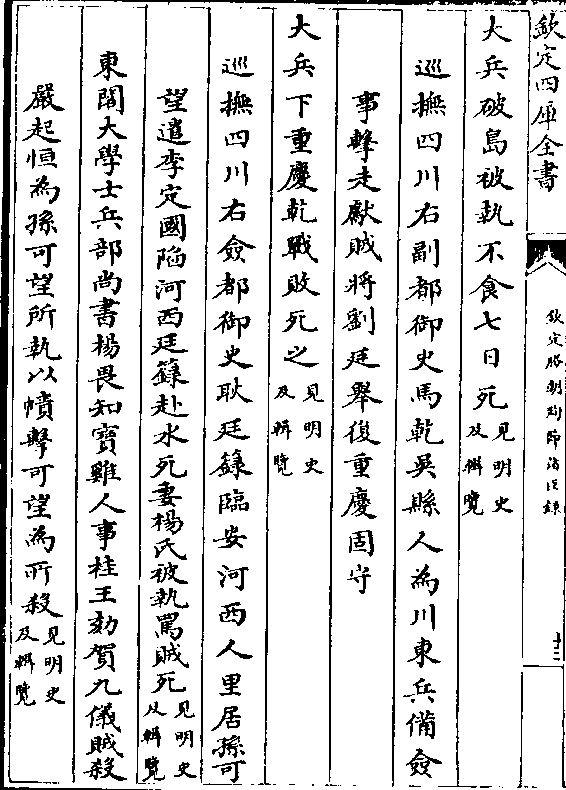 欽定四庫全書
欽定勝朝殉節諸臣錄
十三
大兵破島被執不食七日死見明史及輯覽
巡撫四川右副都御史馬乾吳縣人為川東兵備僉
事擊走獻賊將劉廷舉復重慶固守
大兵下重慶乾戰敗死之見明史及輯覽
巡撫四川右僉都御史耿廷籙臨安河西人里居孫可
望遣李定國陷河西廷籙赴水死妻楊氏被執罵賊死見明史及輯覽
東閣大學士兵部尚書楊畏知寶雞人事桂王劾賀九儀賊殺
嚴起恒為孫可望所執以幘擊可望為所殺見明史及輯覽